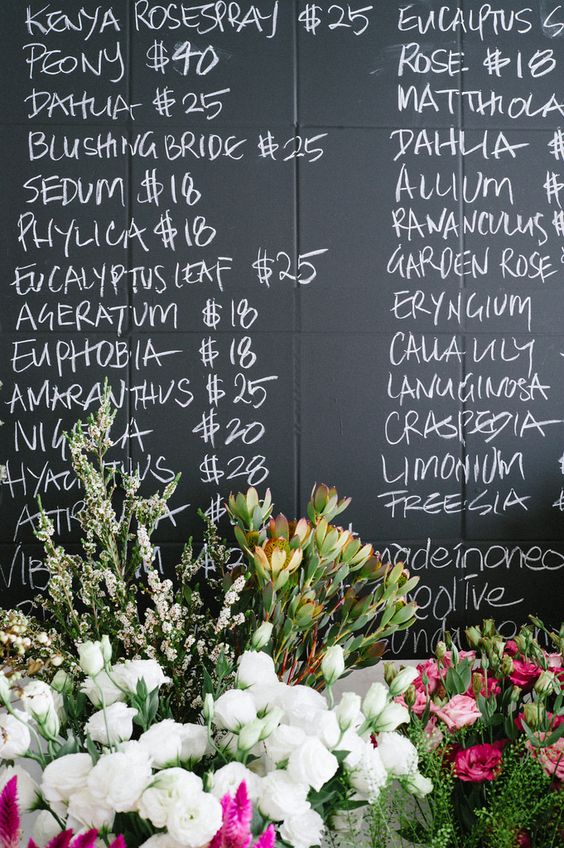 KENYA ROSESPRAY $25
PEONY $40
DAHLIA $25
BLUSHING BRIDE $25
SEDUM $18
PHYLICA $18
EUCALYPTUS LEAF $25
AGERATUM $18
EUPHOBIA $18
AMARANTHUS $25
$20
$28
$
EUCALPTUS S
ROSE $18
MATTHIOLA
DAHLIA $
ALLIUM $
RANANCULUS $
GARDEN ROSE $
ERYNGIUM
CALLA LILY
LANUGINOSA
CRASPEDIA
LIMONIUM
FREESIA
madeinoneo